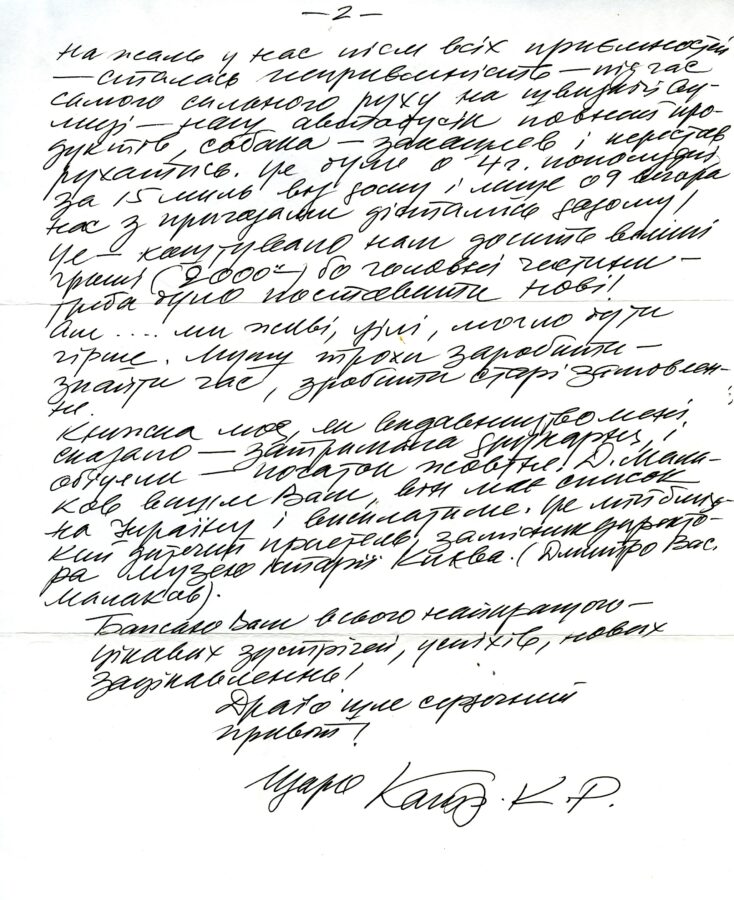 — 2 —
на жаль у нас після всіх приємностей
— сталась неприємність — під час
самого сильного руху на швидкій ву-
лиці — наш автобусік повний про-
дуктів, собака — закашляв і перестав
рухатись. Це було о 4 г. пополудні
за 15 миль від дому і лише о 9 вечора
нас з пригодами дістались додому!
Це — коштувало нам досить великі
гроші (2000) бо головні частини —
треба було поставити нові!
Ал .... ми живі, цілі, могло бути
гірше. Мушу трохи заробити —
знайти час, зробити старі замовлен-
не.
Книжка моя, як видавництво мені
сказало — затримала друкарня, і
обіцяли — початок жовтня. Д. Мала-
ков вишле Вам, він має список
на Україну і висилатиме. Це мій близь-
кий дитячий приятель, замісник директо-
ра Музею Історії Києва. (Дмитро Вас.
Малаков).
Бажаю Вам всього найкращого —
цікавих зустрічей, успіхів, нових
зацікавленнь!
Драго шле сердечний
привіт!
Щиро К. Р.